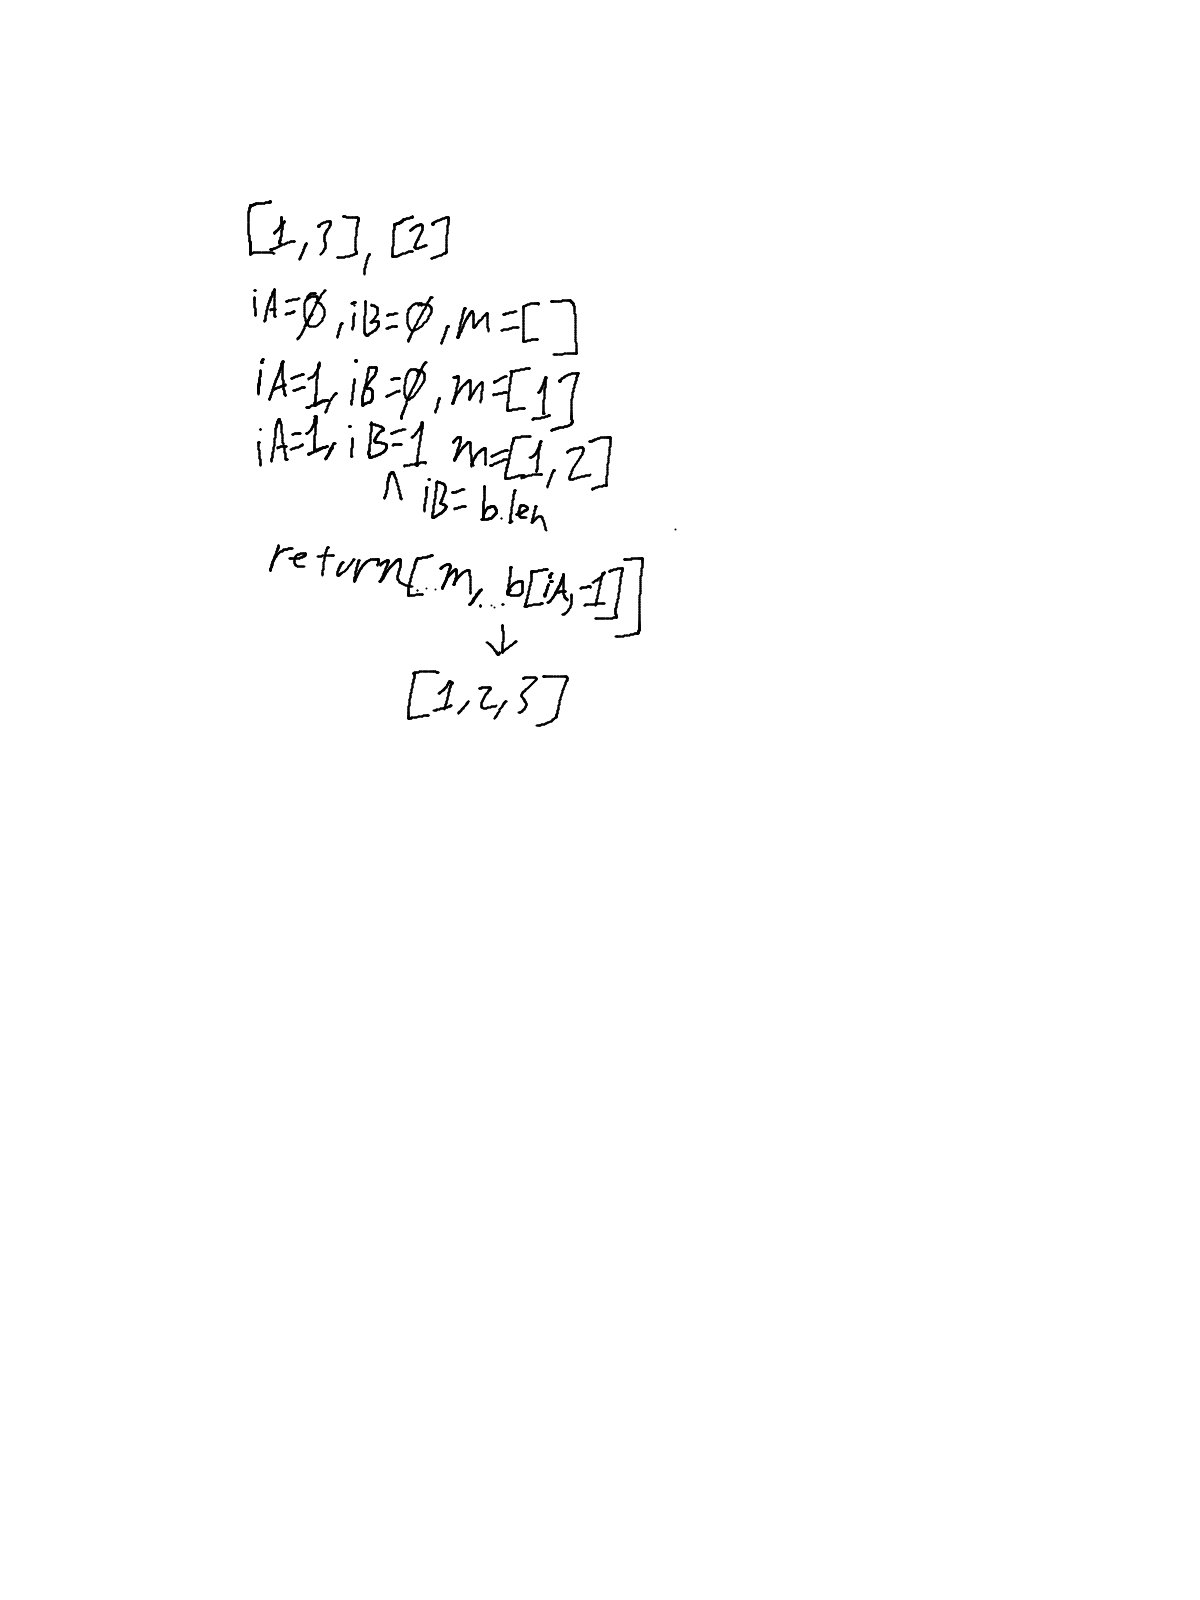 [1,3], [2]
iA=∅, iB=∅, m=[ ]
iA=1, iB=∅, m=[1]
iA=1, iB=1 m=[1,2]
^ iB= b.len
return[...m, ...b[iA,-1]]
↓
[1,2,3]